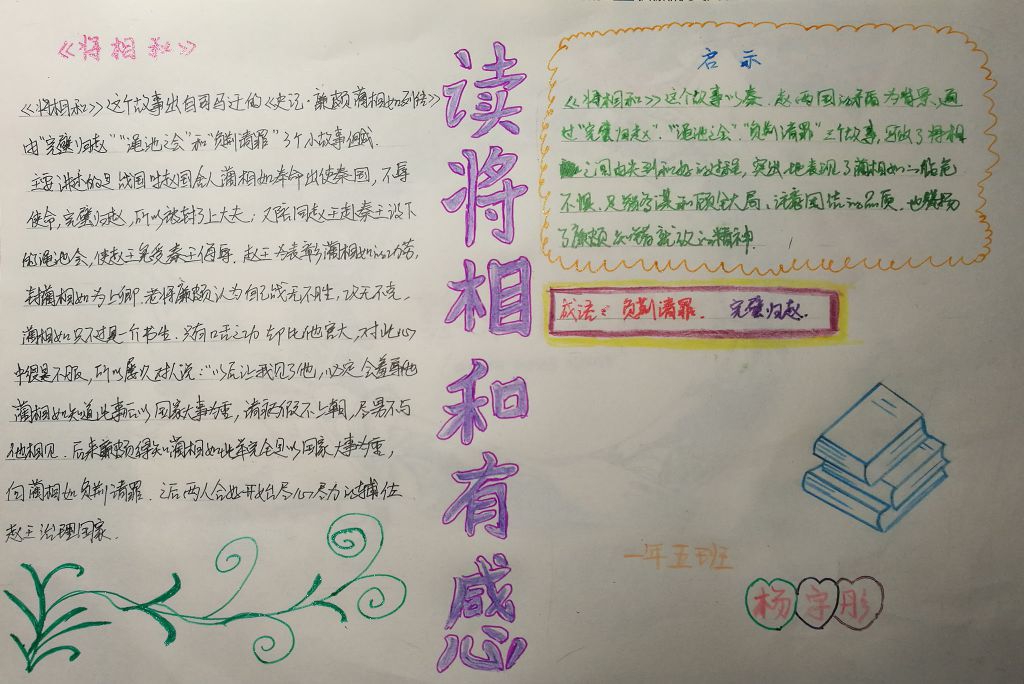 《将相和》
《将相和》这个故事出自司马迁的《史记·廉颇蔺相如列传》
由"完璧归赵""渑池之会"和"负荆请罪"3个小故事组成.
主要讲述的是战国时赵国舍人蔺相如奉命出使秦国,不辱
使命,完璧归赵,所以被封了上大夫;又陪同赵王赴秦王设下
的渑池会,使赵王免受秦王侮辱.赵王为表彰蔺相如的功劳,
封蔺相如为上卿.老将廉颇认为自己战无不胜,攻无不克,
蔺相如只不过是一个书生.只有口舌之功却比他官大,对此心
中很是不服,所以屡次对人说:"以后让我见了他,必定会羞辱他
蔺相如知道此事后以国家大事为重,请病假不上朝,尽量不与
他相见.后来廉颇得知蔺相如此举完全是以国家大事为重,
向蔺相如负荆请罪.之后两人合好开始尽心尽力的辅佐
赵王治理国家.
读将相和有感
启示
《将相和》这个故事以秦.赵两国的矛盾为背景、通
过"完璧归赵"."渑池之会"."负荆请罪"三个故事,写出了将相
之间由失到和好的过程,突出地表现了蔺相如一临危
不惧.足智多谋和顾全大局、注意团结的品质.也赞扬
了廉颇 的精神.
成语: 负荆请罪. 完璧归赵.
一年五班
杨宇彤